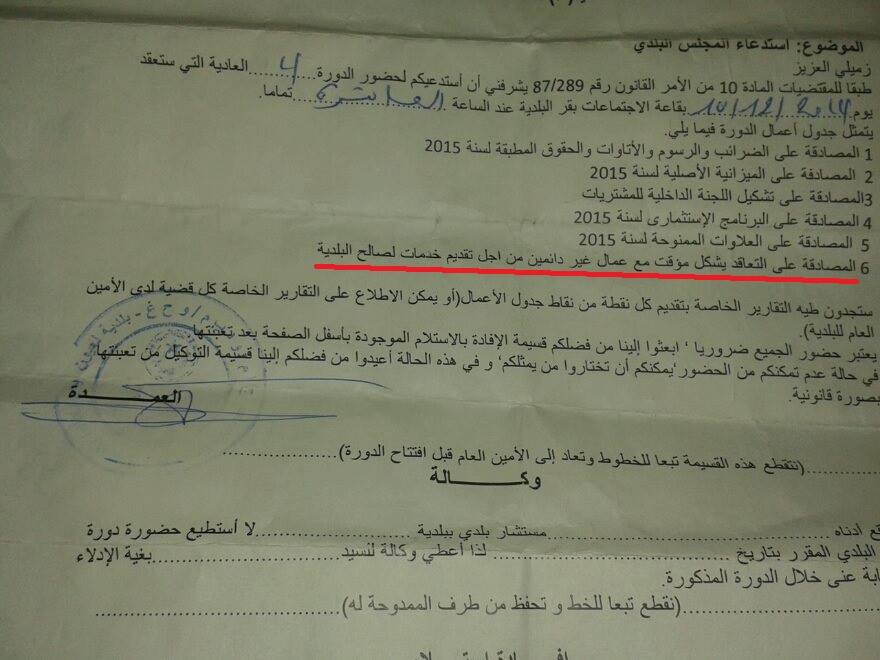 الموضوع: استدعاء المجلس البلدي
زميلي العزيز
طبقا للمقتضيات المادة 10 من الأمر القانون رقم 87/289 يشرفني أن أستدعيكم لحضور الدورة 4 العادية التي ستعقد
يوم 10/12/2014 بقاعة الاجتماعات بقر البلدية عند الساعة العاشرة تماما.
يتمثل جدول أعمال الدورة فيما يلي.
1 المصادقة على الضرائب والرسوم والأتاوات والحقوق المطبقة لسنة 2015
2 المصادقة على الميزانية الأصلية لسنة 2015
3المصادقة على تشكيل اللجنة الداخلية للمشتريات
4 المصادقة على البرنامج الإستثمارى لسنة 2015
5 المصادقة على العلاوات الممنوحة لسنة 2015
6 المصادقة على التعاقد يشكل مؤقت مع عمال غير دائمين من اجل تقديم خدمات لصالح البلدية
ستجدون طيه التقارير الخاصة بتقديم كل نقطة من نقاط جدول الأعمال(أو يمكن الاطلاع على التقارير الخاصة كل قضية لدى الأمين
العام للبلدية).
يعتبر حضور الجميع ضروريا ‘ ابعثوا إلينا من فضلكم قسيمة الإفادة بالاستلام الموجودة بأسفل الصفحة بعد تعبئتها
في حالة عدم تمكنكم من الحضور‘يمكنكم أن تختاروا من يمثلكم‘ و في هذه الحالة أعيدوا من فضلكم إلينا قسيمة التوكيل من تعبئتها
بصورة قانونية.
العمـــدة
(نتقطع هذه القسيمة تبعا للخطوط وتعاد إلى الأمين العام قبل افتتاح الدورة)
وكـــالة
أدناه مستشار بلدي ببلدية لا أستطيع حضورة دورة
البلدي المقرر بتاريخ لذا أعطي وكالة لنسيد بغية الإدلاء
عنى خلال الدورة المذكورة.
(نقطع تبعا للخط و تحفظ من طرف الممدوحة له)